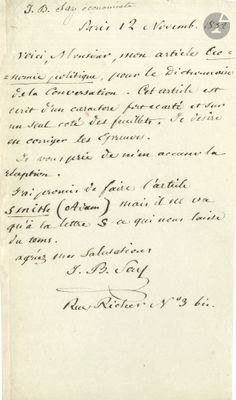 J. B. Say économiste
Paris 12 Novemb. 1832
Voici, Monsieur, mon article Eco-
nomie politique, pour le Dictionnaire
de la Conversation. Cet article est
ecrit d'un caractere fort écarté et sur
un seul coté des feuillets. Je desire
en corriger les Epreuves.
Je vous prie de m'en accuser la
réception.
J'ai promis de faire l'article
Smith (Adam) mais il ne va
qu'à la lettre S ce qui nous laisse
du tems.
agréez mes Salutations
J. B. Say
Rue Richer N° 3 bis.